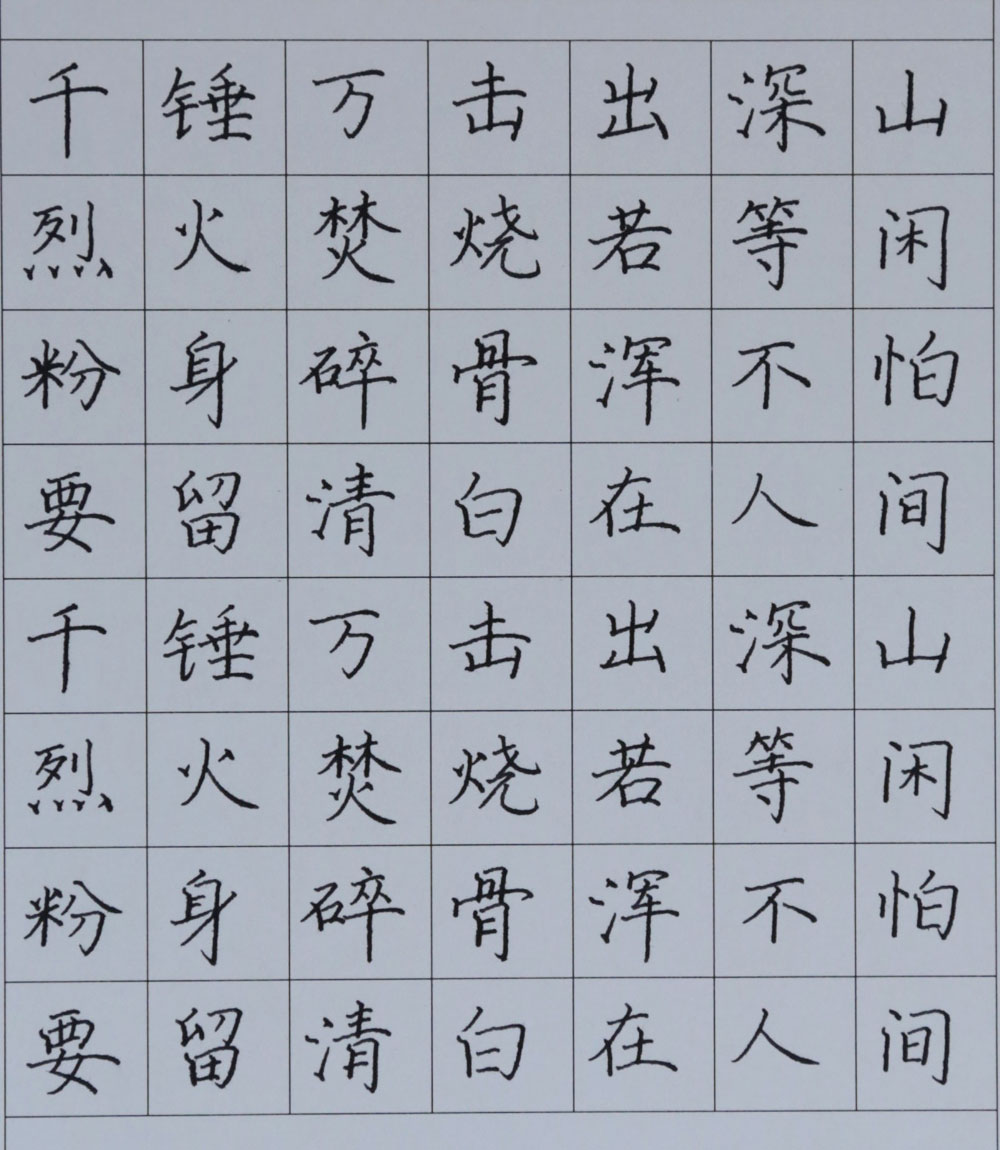 千锤万击出深山
烈火焚烧若等闲
粉身碎骨浑不怕
要留清白在人间
千锤万击出深山
烈火焚烧若等闲
粉身碎骨浑不怕
要留清白在人间